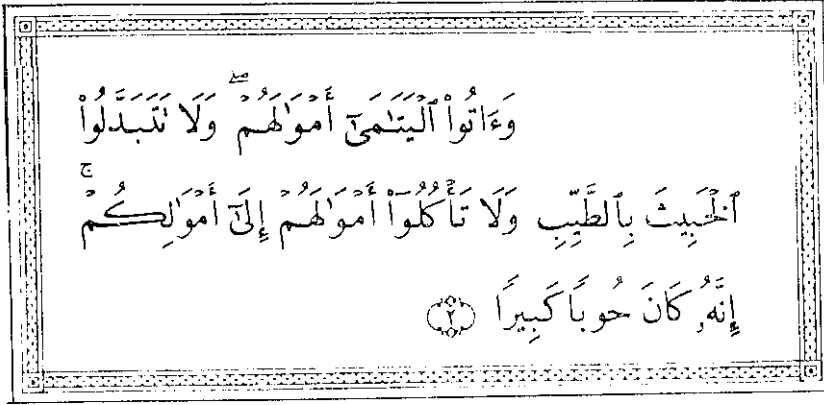 وَءَاتُوا۟ ٱلْيَتَـٰمَىٰٓ أَمْوَٰلَهُمْ ۖ وَلَا تَتَبَدَّلُوا۟
ٱلْخَبِيثَ بِٱلطَّيِّبِ وَلَا تَأْكُلُوٓا۟ أَمْوَٰلَهُمْ إِلَىٰٓ أَمْوَٰلِكُمْ ۚ
إِنَّهُۥ كَانَ حُوبًا كَبِيرًا ﴿٢﴾